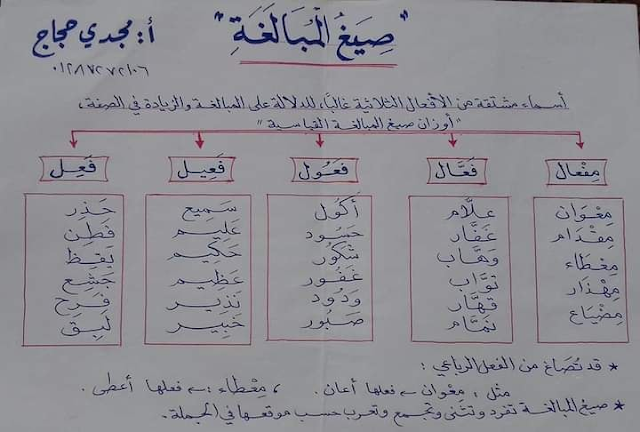 "صِيَغُ الْمُبَالَغَةِ"
أ: مجدي حجاج
٠١٢٨٧٢٧٢١٠٦
أسماء مشتقة من الأفعال الثلاثية غالبًا، للدلالة على المبالغة والزيادة في الصفة.
"أوزان صيغ المبالغة القياسية"
مِفْعَال
مِعْوَان
مِقْدَام
مِعْطَاء
مِهْذَار
مِضْيَاع
فَعَّال
علَّام
غَفَّار
وَهَّاب
توَّاب
قهَّار
نمَّام
فَعُول
أَكُول
حَسُود
شَكُور
غَفُور
وَدُود
صَبُور
فَعِيل
سَمِيع
عَلِيم
حَكِيم
عَظِيم
نَذِير
خَبِير
فَعِل
حَذِر
فَطِن
يَقِظ
جَشِع
فَرِح
لَبِق
* قد تُصَاغ من الفعل الرباعي:
مثل: مِعْوان ← فعلها أعان. ، مِعْطاء: ← فعلها أعطى.
* صيغ المبالغة تفرد وتثنى وتجمع وتعرب حسب موقعها في الجملة.